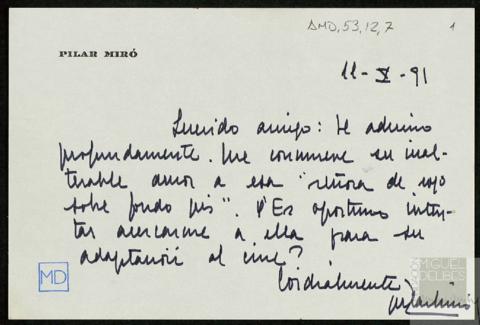 AMD,53,12,7
1
PILAR MIRÓ
11-X-91
Querido amigo: le admiro
profundamente. Me conmueve su inal-
terable amor a esa "señora de rojo
sobre fondo gris". ¿Es oportuno inten-
tar acercarme a ella para su
adaptación al cine?
Cordialmente
MD
FUNDACIÓN
MIGUEL
DELIBES